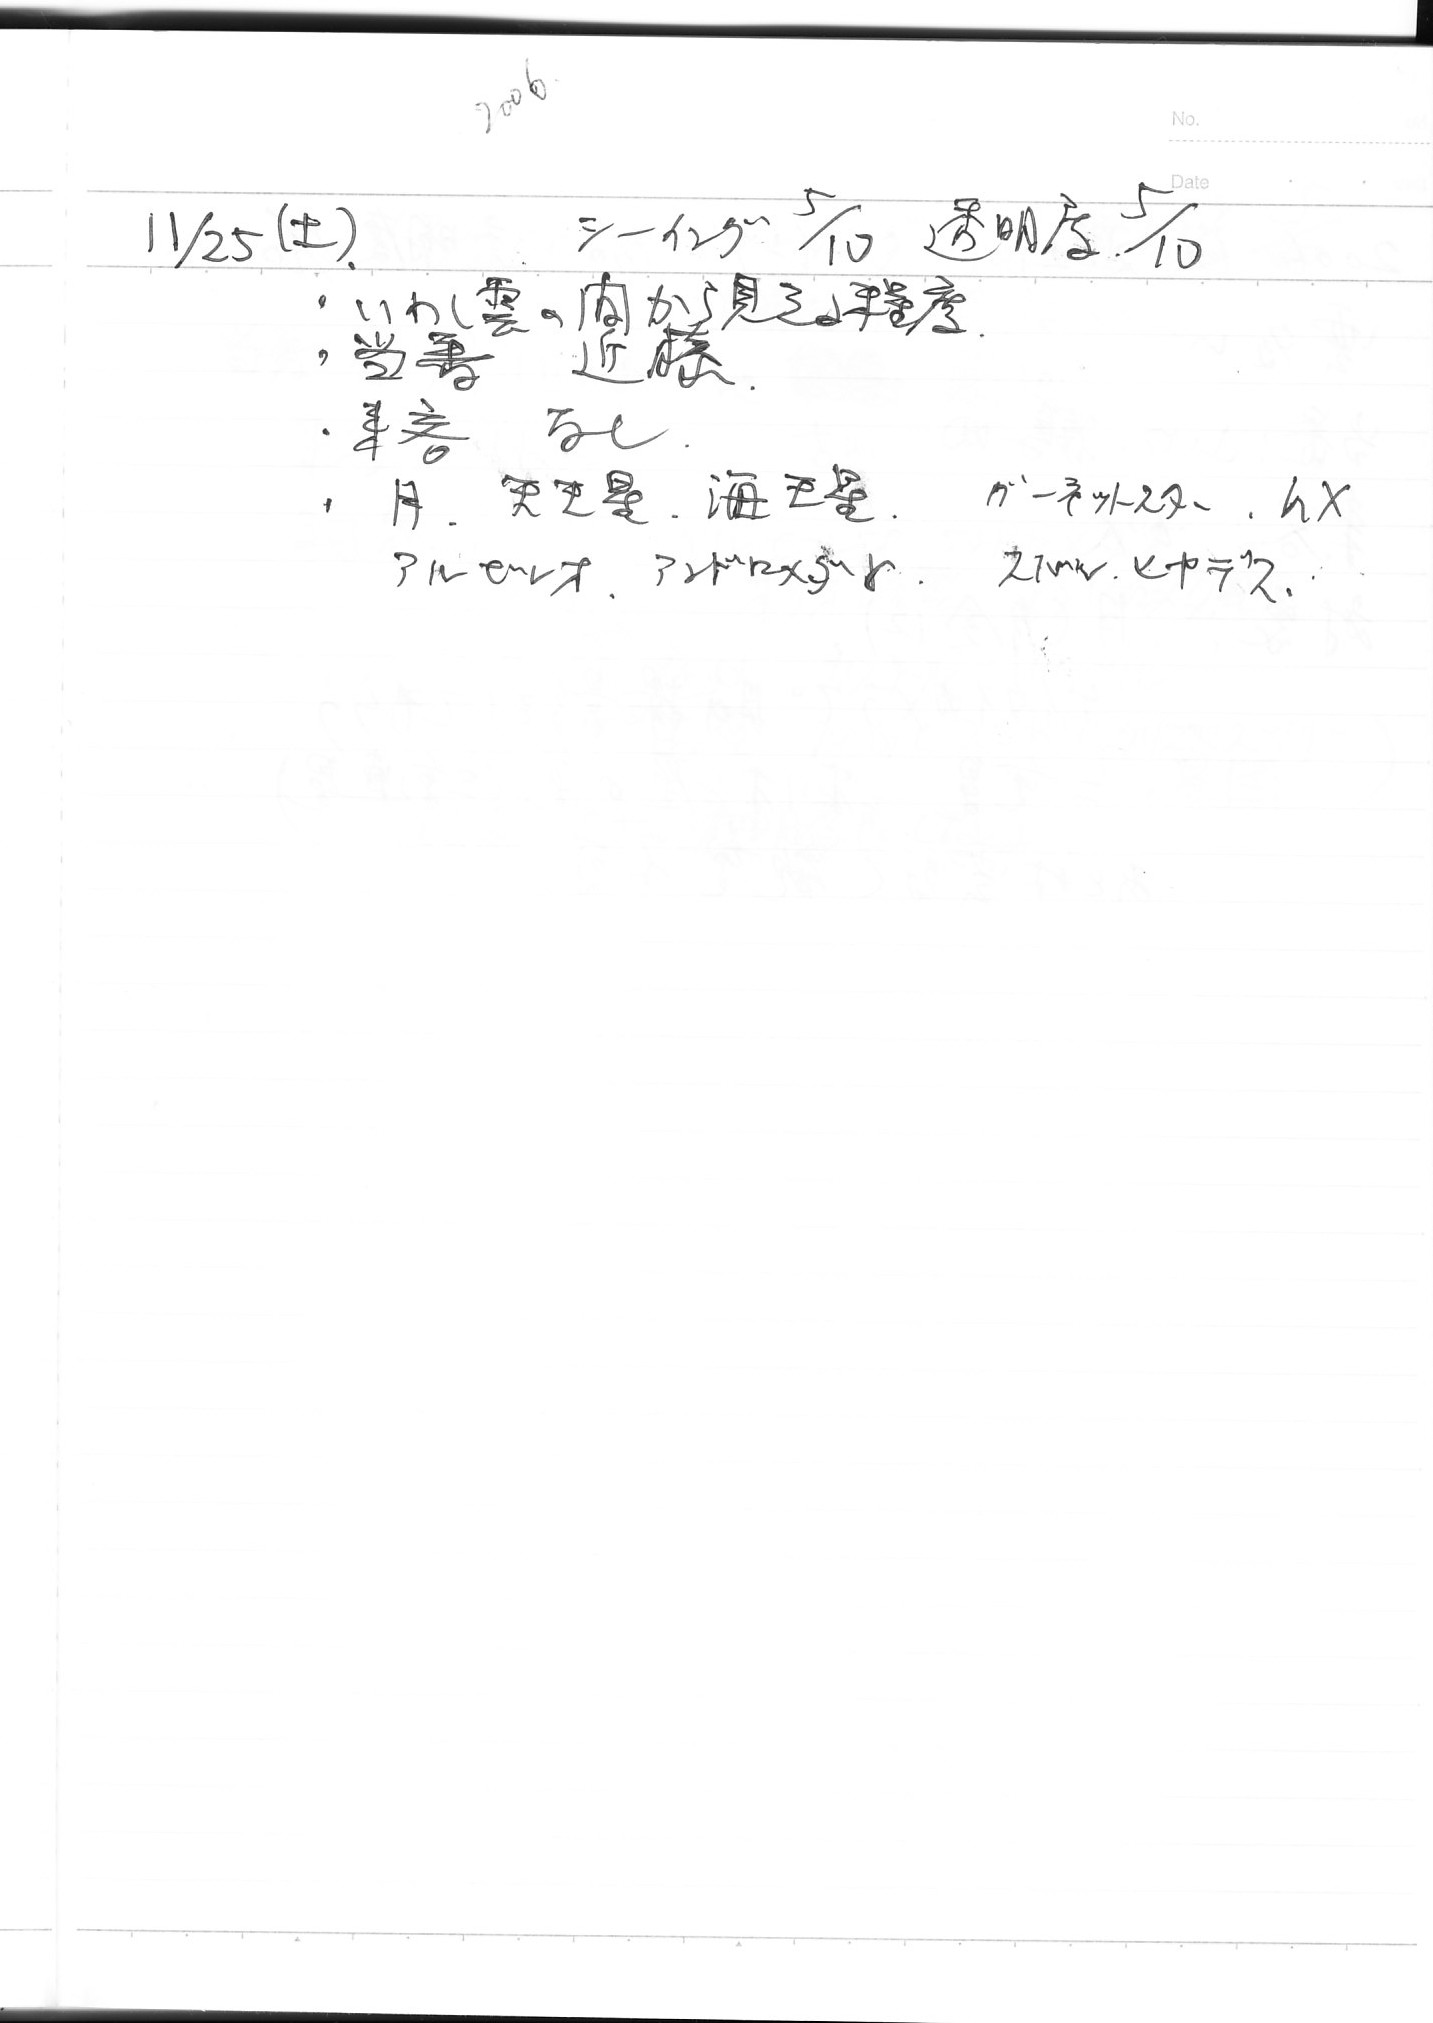 2006.
No.
Date
11/25(土). シーイング 5/10 透明度 5/10
・いわし雲の間から見える程度.
・当番 近藤.
・来客 なし.
・月. 天王星. 海王星. ガーネットスター. hχ
アルビレオ. アンドロメダγ. ヒヤデス.